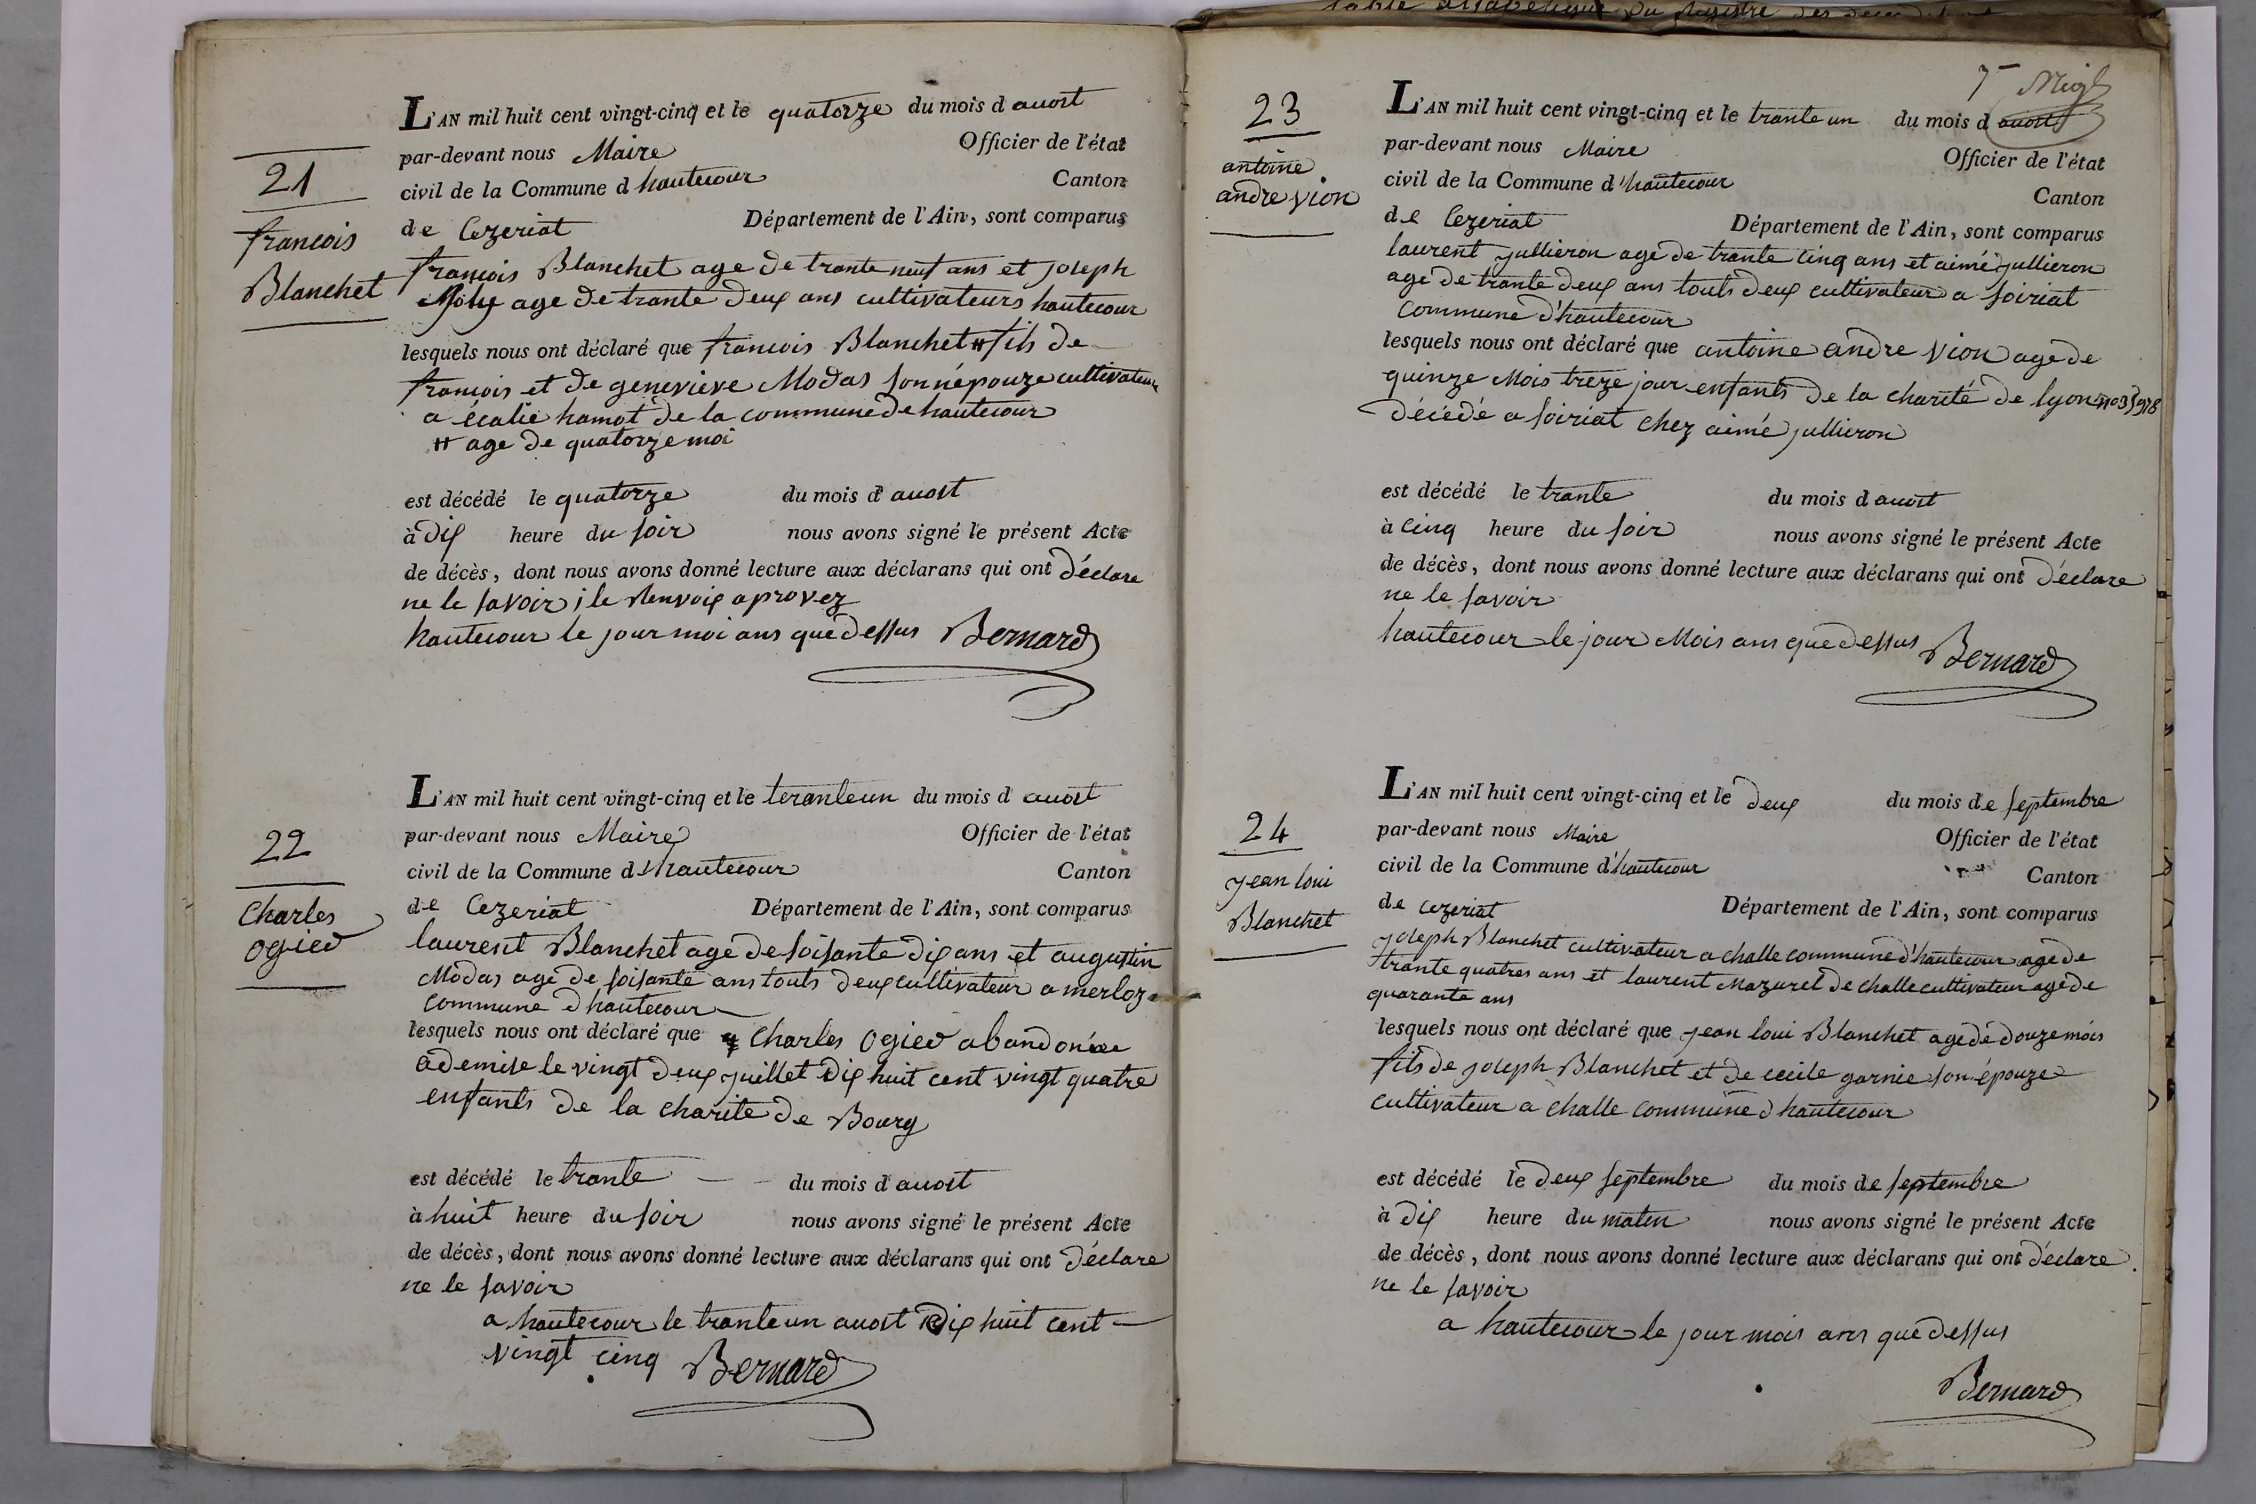 21
francois
Blanchet
L'AN mil huit cent vingt-cinq et le quatorze du mois d auost
par-devant nous Maire Officier de l'état
civil de la Commune d hautecour Canton
de Cezeriat Département de l'Ain, sont comparus
francois Blanchet age de trante neuf ans et joseph
Moly age de trante deux ans cultivateurs hautecour
lesquels nous ont déclaré que francois Blanchet # fils de
francois et de genevieve Modas son népouze cultivateur
a écalie hamot de la commune de hautecour
# age de quatorze moi
est décédé le quatorze du mois d auost
à dix heure du soir nous avons signé le présent Acte
de décès, dont nous avons donné lecture aux déclarans qui ont déclare
ne le savoir ; le Renvoix aprovez
hautecour le jour moi ans que dessus Bernard
22
Charles
ogied
L'AN mil huit cent vingt-cinq et le teranteun du mois d auost
par-devant nous Maire Officier de l'état
civil de la Commune d'hautecour Canton
de Cezeriat Département de l'Ain, sont comparus
laurent Blanchet age de soisante dix ans et augustin
Modas age de soisante ans touts deux cultivateur a merloz
commune d hautecour
lesquels nous ont déclaré que Charles Ogied abandonée
ademise le vingt deux juillet dix huit cent vingt quatre
enfants de la charite de Bourg
est décédé le trante du mois d auost
à huit heure du soir nous avons signé le présent Acte
de décès, dont nous avons donné lecture aux déclarans qui ont déclare
ne le savoir
a hautecour le tranteun auost dix huit cent
vingt cinq Bernard
23
antoine
andre vion
L'AN mil huit cent vingt-cinq et le tranteun du mois d auost
par-devant nous Maire Officier de l'état
civil de la Commune d'hautecour Canton
de Cezeriat Département de l'Ain, sont comparus
laurent jullieron age de trante cinq ans et aimé jullieron
age de trante deux ans touts deux cultivateur a soiriat
commune d'hautecour
lesquels nous ont déclaré que antoine andre vion age de
quinze Mois treze jour enfants de la charité de lyon
décédé a soiriat chez aimé jullieron
est décédé le trante du mois d auost
à cinq heure du soir nous avons signé le présent Acte
de décès, dont nous avons donné lecture aux déclarans qui ont déclare
ne le savoir
hautecour le jour Mois ans que dessus Bernard
24
jean loui
Blanchet
L'AN mil huit cent vingt-cinq et le deux du mois de septembre
par-devant nous Maire Officier de l'état
civil de la Commune d'hautecour Canton
de cezeriat Département de l'Ain, sont comparus
joseph Blanchet cultivateur a challe commune d'hautecour age de
trante quatres ans et laurent Mazuret de challe cultivateur age de
quarante ans
lesquels nous ont déclaré que jean loui Blanchet age de douze mois
fils de joseph Blanchet et de cecile garnie son épouze
cultivateur a challe commune d hautecour
est décédé le deux septembre du mois de septembre
à dix heure du maten nous avons signé le présent Acte
de décès, dont nous avons donné lecture aux déclarans qui ont déclare
ne le savoir
a hautecour le jour mois ans que dessus
Bernard